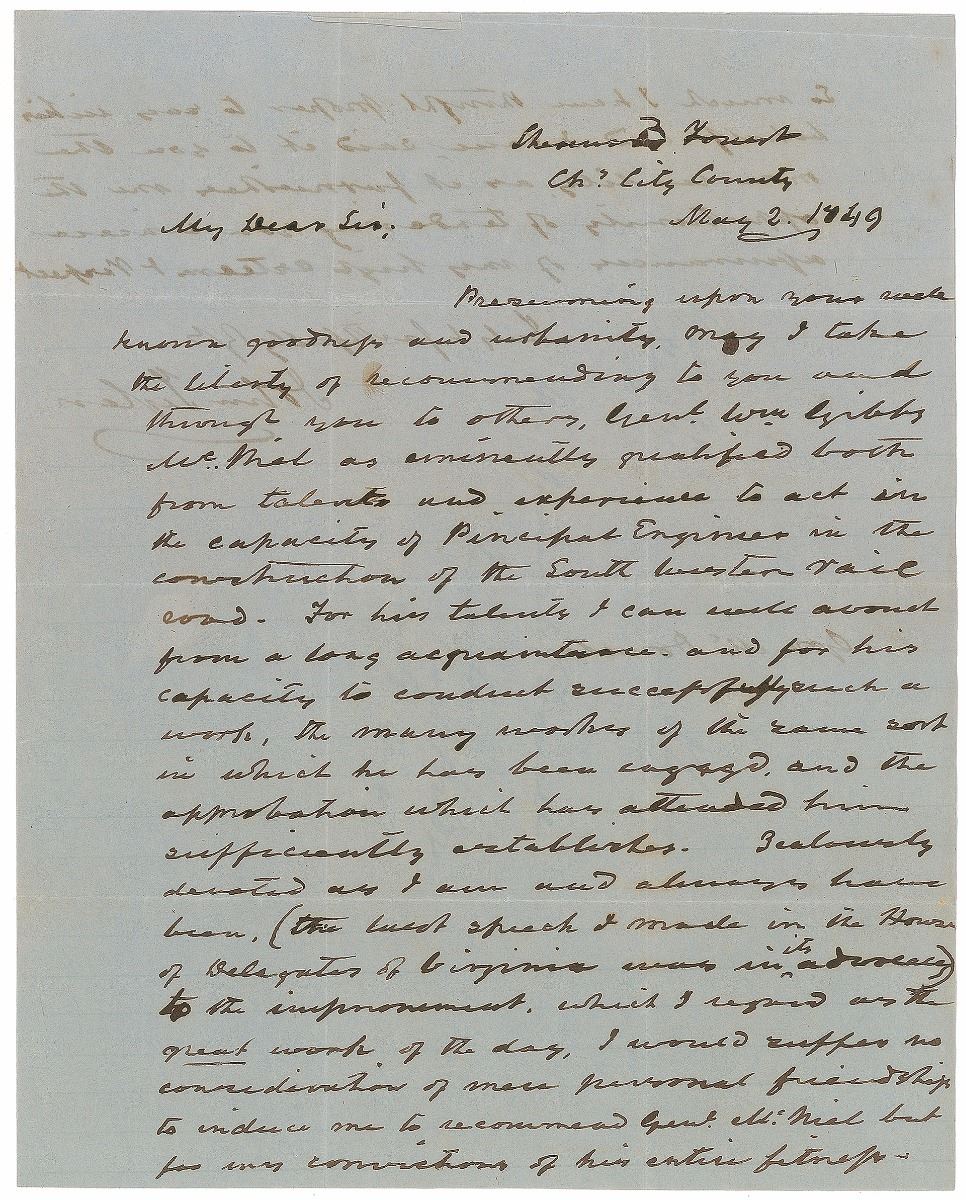 Sherwood Forest
Chs. City County
May 2. 1849
My Dear Sir;
Presuming upon your well
known goodness and urbanity, may I take
the liberty of recommending to you and
through you to others, Genl. Wm Gibbs
Mc. Niel as eminently qualified both
from talents and experience to act in
the capacity of Pincipal Engineer in the
construction of the South Western rail
road. For his talents I can well avouch
from a long acquaintance. and for his
capacity to conduct successfully such a
work, the many works of the same sort
in which he has been engaged, and the
approbation which has attended him
sufficiently establishes. Zealously
devoted as I am and always have
been, (the last speech I made in the House
of Delegates of Virginia was in its advocacy)
to the improvement, which I regard as the
great work of the day, I would suffer no
consideration of mere personal friendship
to induce me to recommend Genl. Mc. Niel but
for my convictions of his entire fitness-